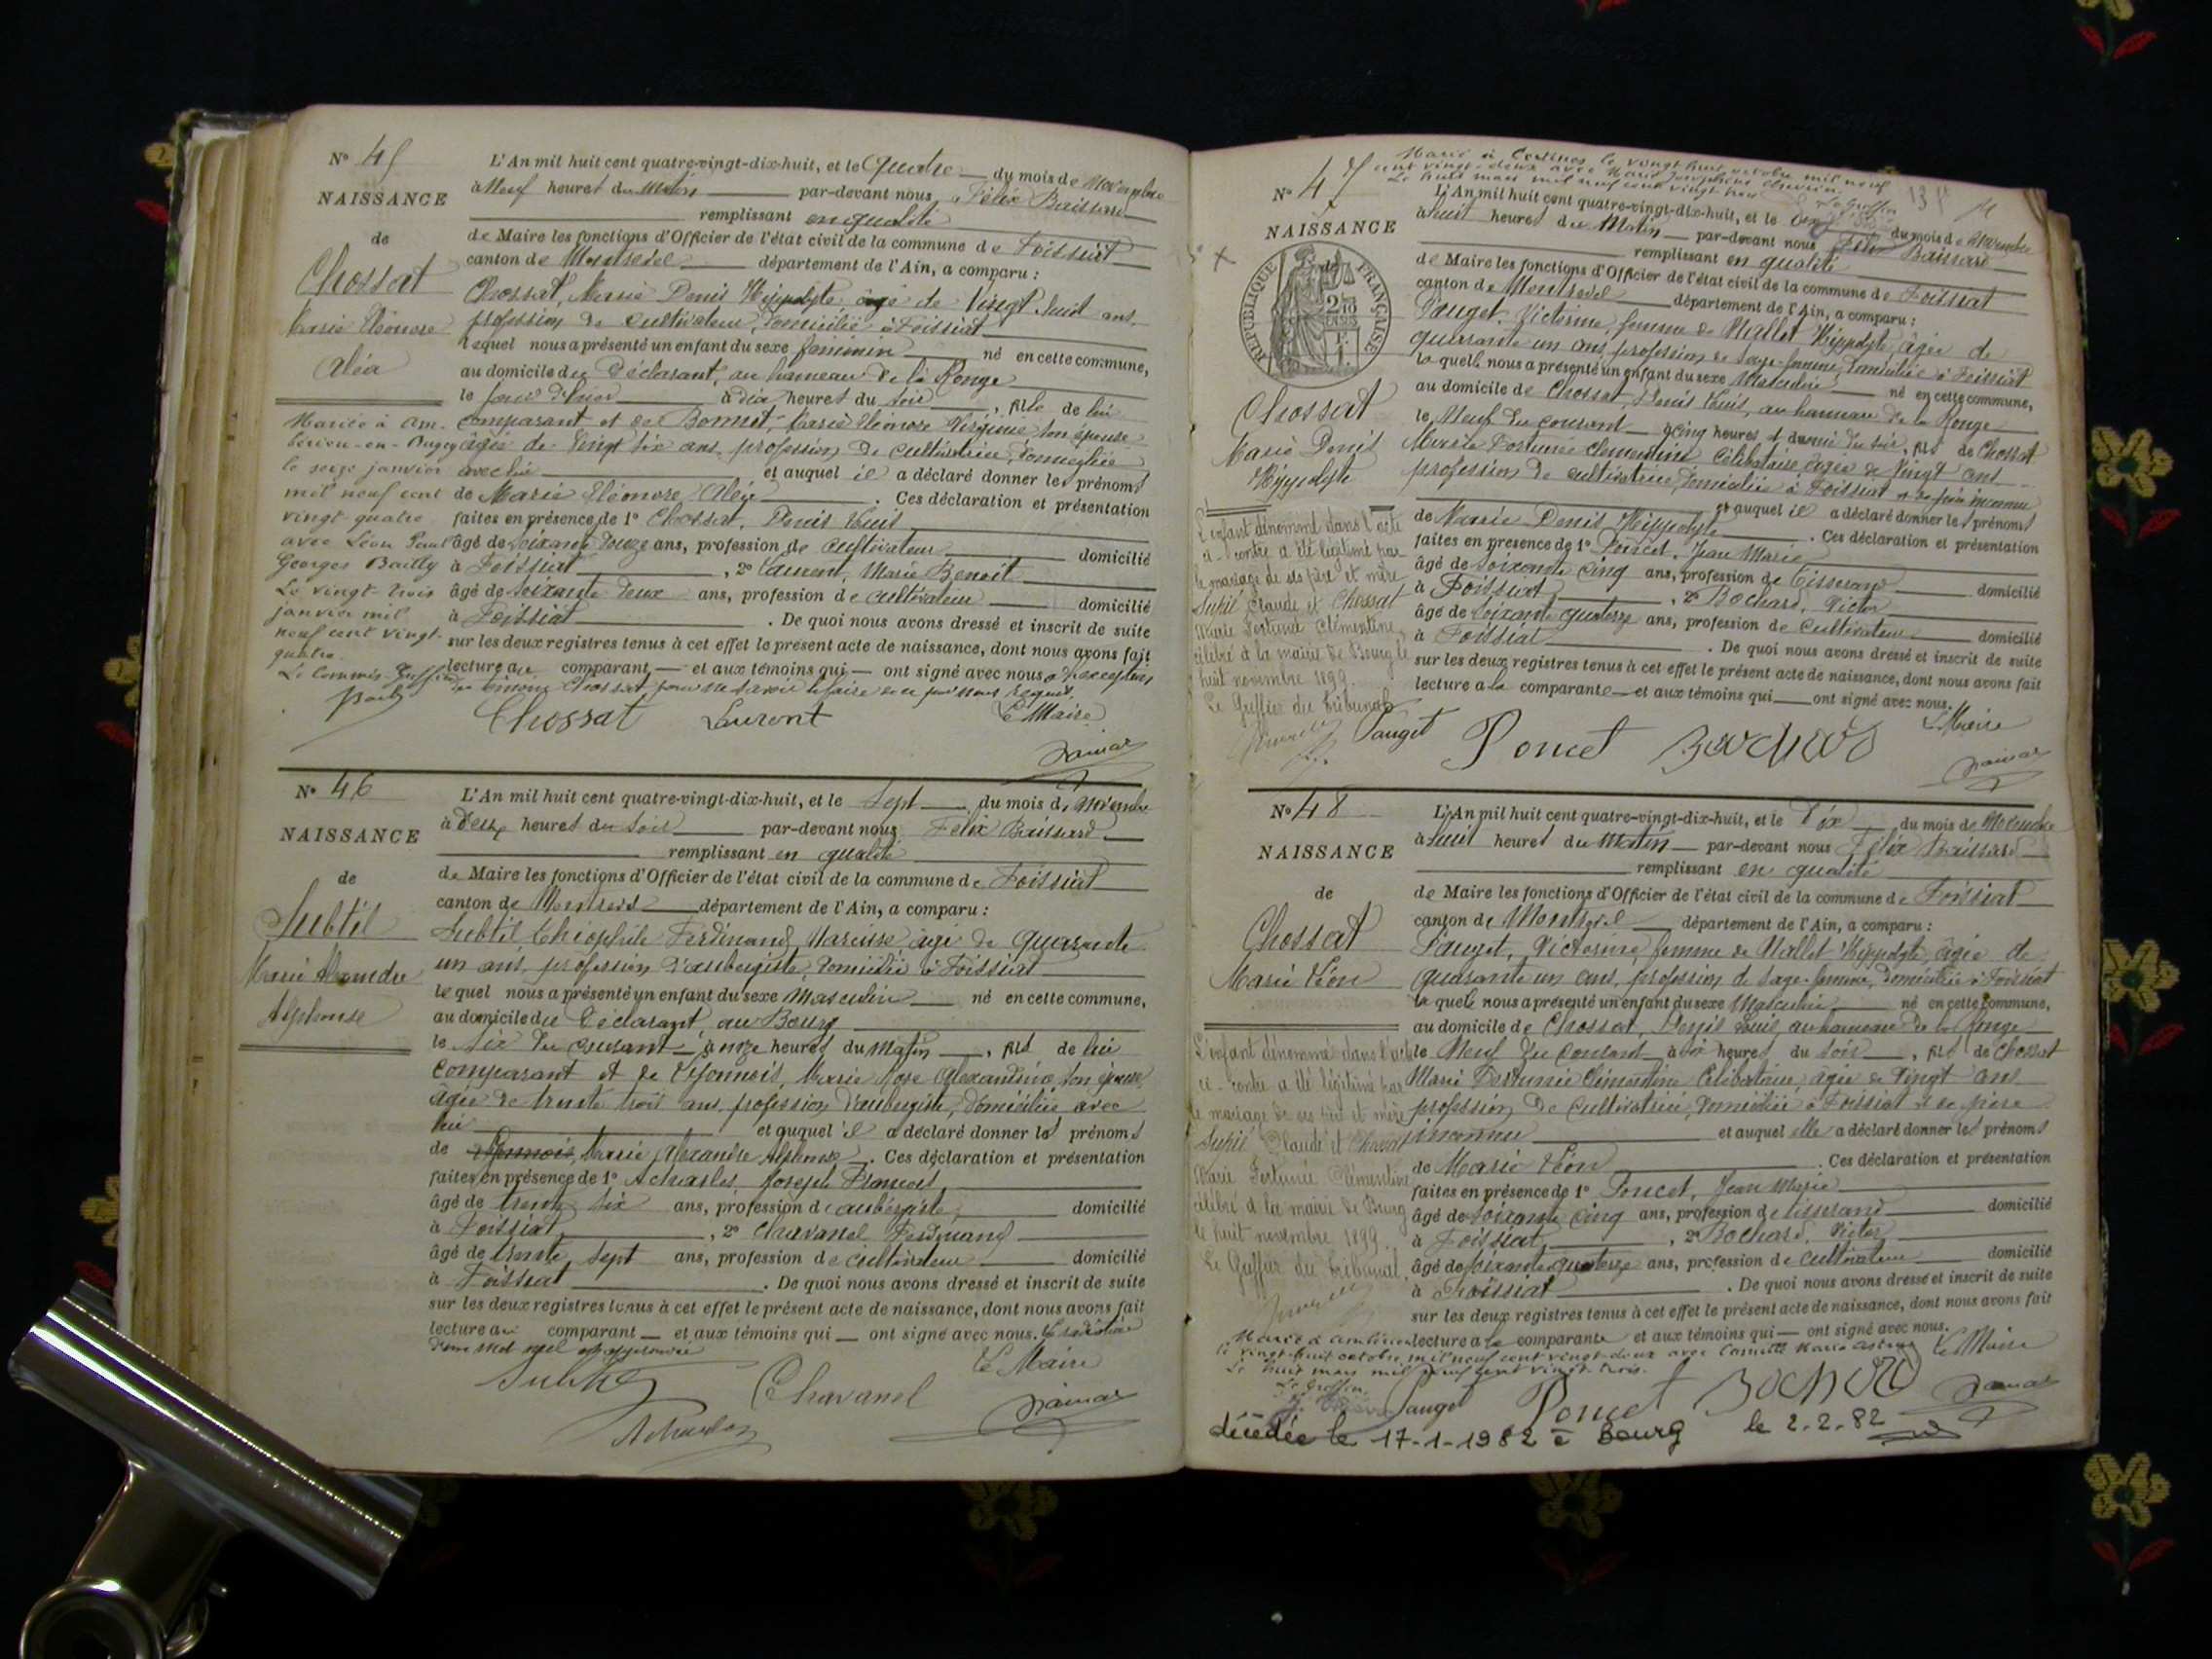 N° 45
NAISSANCE
de
Chossat
Marie Eléonore
Aléa
Mariée à Am-
bérieu-en-Bugey
le seize janvier
mil neuf cent
vingt quatre
avec Léon Paul
Georges Bailly
Le vingt trois
janvier mil
neuf cent vingt-
quatre.
Le Commis-Greffier
L'An mil huit cent quatre-vingt-dix-huit, et le quatre du mois de Novembre
à Neuf heures du Matin par-devant nous Félix Baissard
remplissant en qualité
de Maire les fonctions d'Officier de l'état civil de la commune de Foissiat
canton de Montrevel département de l'Ain, a comparu :
Chossat, Marie Denis Hippolyte, âgé de Vingt huit ans,
profession de cultivateur, domicilié à Foissiat
lequel nous a présenté un enfant du sexe féminin né en cette commune,
au domicile du Déclarant, au hameau de la Ronge
le jour d'hier à dix heures du soir, fille de lui
comparant et de Bonnet, Marie Eléonore Virginie son épouse
âgée de Vingt six ans, profession de cultivatrice, domiciliée
avec lui et auquel il a déclaré donner les prénoms
de Marie Eléonore Aléa. Ces déclaration et présentation
faites en présence de 1° Chossat, Denis Louis
âgé de soixante douze ans, profession de cultivateur domicilié
à Foissiat, 2° Laurent, Marie Benoit
âgé de soixante deux ans, profession de cultivateur domicilié
à Foissiat. De quoi nous avons dressé et inscrit de suite
sur les deux registres tenus à cet effet le présent acte de naissance, dont nous avons fait
lecture au comparant et aux témoins qui ont signé avec nous à l'exception
du témoin Chossat pour ne savoir le faire de ce par nous requis.
Chossat Laurent Le Maire
N° 46
NAISSANCE
de
Subtil
Marie Alexandre
Alphonse
L'An mil huit cent quatre-vingt-dix-huit, et le Sept du mois de Novembre
à deux heures du soir par-devant nous Félix Baissard
remplissant en qualité
de Maire les fonctions d'Officier de l'état civil de la commune de Foissiat
canton de Montrevel département de l'Ain, a comparu :
Subtil Théophile Ferdinand Narcisse âgé de quarante
un ans, profession d'aubergiste, domicilié à Foissiat
lequel nous a présenté un enfant du sexe Masculin né en cette commune,
au domicile du Déclarant, au Bourg
le six du courant à onze heures du Matin, fils de lui
comparant et de Lyonnois, Marie Rose Alexandrine son épouse
âgée de trente trois ans, profession d'aubergiste, domiciliée avec
lui et auquel il a déclaré donner les prénoms
de Marie Alexandre Alphonse. Ces déclaration et présentation
faites en présence de 1° Acharles Joseph François
âgé de trente six ans, profession d'aubergiste domicilié
à Foissiat, 2° Chavanel Ferdinand
âgé de trente sept ans, profession de cultivateur domicilié
à Foissiat. De quoi nous avons dressé et inscrit de suite
sur les deux registres tenus à cet effet le présent acte de naissance, dont nous avons fait
lecture au comparant et aux témoins qui ont signé avec nous. La radiation
d'un mot nul approuvée
Subtil Chavanel Le Maire
Acharles
Marié à Certines le vingt huit octobre mil neuf
cent vingt-deux avec Marie Josephine
Le huit mars mil neuf cent vingt trois
Le Greffier
N° 47
NAISSANCE
de
RÉPUBLIQUE FRANÇAISE
Chossat
Marie Denis
Hippolyte
L'enfant dénommé dans l'acte
ci-contre a été légitimé par
le mariage de ses père et mère
Claude et Chossat
Marie Fortunée Clémentine
célébré à la mairie de Bourg le
huit novembre 1899.
Le Greffier du Tribunal
L'An mil huit cent quatre-vingt-dix-huit, et le dix du mois de Novembre
à huit heures du Matin par-devant nous Félix Baissard
remplissant en qualité
de Maire les fonctions d'Officier de l'état civil de la commune de Foissiat
canton de Montrevel département de l'Ain, a comparu :
Pauget, Victorine, femme de Mallet Hippolyte, âgée de
quarante un ans, profession de sage-femme, domiciliée à Foissiat
laquelle nous a présenté un enfant du sexe Masculin né en cette commune,
au domicile de Chossat, Denis Louis, au hameau de la Ronge
le Neuf du courant à cinq heures et demie du soir, fils de Chossat
Marie Fortunée Clémentine célibataire âgée de Vingt ans
profession de cultivatrice, domiciliée à Foissiat et de père inconnu
et auquel il a déclaré donner les prénoms
de Marie Denis Hippolyte. Ces déclaration et présentation
faites en présence de 1° Poncet, Jean Marie
âgé de soixante cinq ans, profession de Tisserand domicilié
à Foissiat, 2° Bochard, Victor
âgé de soixante quatorze ans, profession de cultivateur domicilié
à Foissiat. De quoi nous avons dressé et inscrit de suite
sur les deux registres tenus à cet effet le présent acte de naissance, dont nous avons fait
lecture à la comparante et aux témoins qui ont signé avec nous.
Pauget Poncet Bochard Le Maire
N° 48
NAISSANCE
de
Chossat
Marie Léon
L'enfant dénommé dans l'acte
ci-contre a été légitimé par
le mariage de ses père et mère
Claude et Chossat
Marie Fortunée Clémentine
célébré à la mairie de Bourg
le huit novembre 1899.
Le Greffier du Tribunal,
L'An mil huit cent quatre-vingt-dix-huit, et le dix du mois de Novembre
à huit heures du Matin par-devant nous Félix Baissard
remplissant en qualité
de Maire les fonctions d'Officier de l'état civil de la commune de Foissiat
canton de Montrevel département de l'Ain, a comparu :
Pauget, Victorine, femme de Mallet Hippolyte, âgée de
quarante un ans, profession de sage-femme, domiciliée à Foissiat
laquelle nous a présenté un enfant du sexe Masculin né en cette commune,
au domicile de Chossat, Denis Louis, au hameau de la Ronge
le Neuf du courant à six heures du soir, fils de Chossat
Marie Fortunée Clémentine célibataire, âgée de vingt ans
profession de cultivatrice, domiciliée à Foissiat et de père
inconnu et auquel elle a déclaré donner les prénoms
de Marie Léon. Ces déclaration et présentation
faites en présence de 1° Poncet, Jean Marie
âgé de soixante cinq ans, profession de tisserand domicilié
à Foissiat, 2° Bochard, Victor
âgé de soixante quatorze ans, profession de cultivateur domicilié
à Foissiat. De quoi nous avons dressé et inscrit de suite
sur les deux registres tenus à cet effet le présent acte de naissance, dont nous avons fait
lecture à la comparante et aux témoins qui ont signé avec nous.
Le Maire
Marié à
le vingt-huit octobre mil neuf cent vingt-deux avec Camille Marie
Le huit mars mil neuf cent vingt-trois.
Le Greffier
Pauget Poncet Bochard
décédée le 17-1-1982 à Bourg le 2.2.82